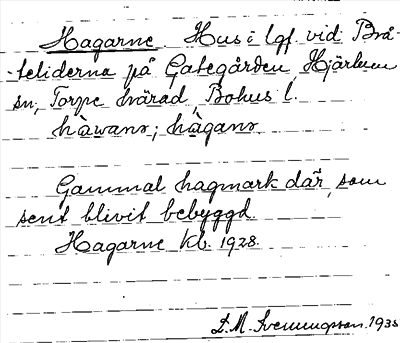 Hagarne Hus i lgf. vid Brå-
-teliderna på Gategården Hjärtum
sn, Torpe härad, Bohus l.
hàwanɘ; hàganɘ
Gammal hagmark där, som
sent blivit bebyggd.
Hagarne kb. 1928.
D. M. Svenungsson. 1935